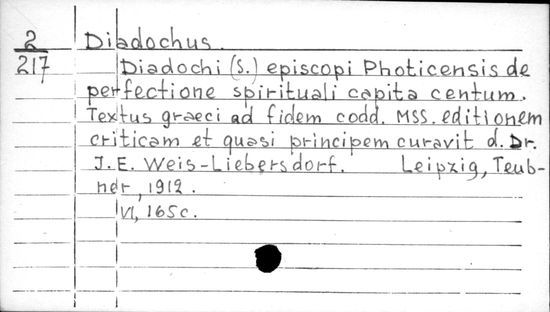 2 Diadochus.
217 Diadochi (S.) episcopi Photicensis de
perfectione spirituali capita centum.
Textus graeci ad fidem codd. MSS. editionem
criticam et quasi principem curavit d. Dr.
J. E. Weis-Liebersdorf. Leipzig, Teub-
ner, 1912.
VI, 165 c.